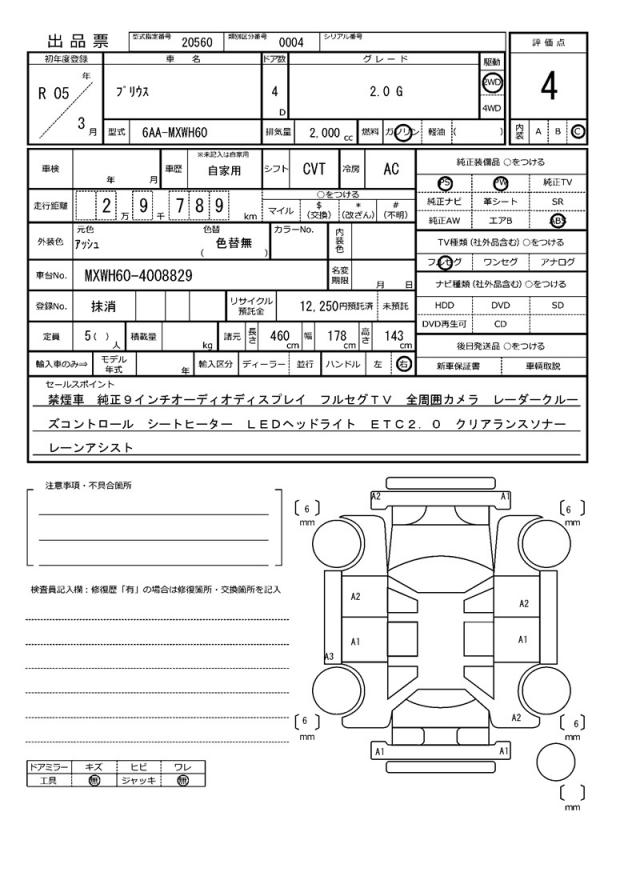 出品票 型式指定番号 20560 類別区分番号 0004 シリアル番号
評価点
4
内装 A B C
初年度登録 車名 ドア数 グレード 駆動
R 05 年 3 月 ﾌﾟﾘｳｽ 4 D 2.0 G 2WD 4WD
型式 6AA-MXWH60 排気量 2,000 cc 燃料 ガソリン 軽油 ( )
車検 年 月 車歴 ※未記入は自家用 自家用 シフト CVT 冷房 AC
走行距離 2 万 9 千 7 8 9 km
○をつける
マイル $(交換) *(改ざん) #(不明)
外装色 元色 ｱｯｼｭ 色替 ( 色替無 ) カラーNo. 内装色
車台No. MXWH60-4008829 名変期限 月 日
登録No. 抹消 リサイクル預託金 12,250円預託済 未預託
定員 5( ) 人 積載量 kg 諸元 長さ 460 cm 幅 178 cm 高さ 143 cm
輸入車のみ⇒ モデル年式 年 輸入区分 ディーラー 並行 ハンドル 左 右
純正装備品 ○をつける
PS PW 純正TV
純正ナビ 革シート SR
純正AW エアB ABS
TV種類(社外品含む)○をつける
フルセグ ワンセグ アナログ
ナビ種類(社外品含む)○をつける
HDD DVD SD
DVD再生可 CD
後日発送品 ○をつける
新車保証書 車輌取説
セールスポイント
禁煙車 純正９インチオーディオディスプレイ フルセグＴＶ 全周囲カメラ レーダークルー
ズコントロール シートヒーター ＬＥＤヘッドライト ＥＴＣ２．０ クリアランスソナー
レーンアシスト
注意事項・不具合箇所
検査員記入欄：修復歴「有」の場合は修復箇所・交換箇所を記入
ドアミラー キズ ヒビ ワレ
工具 無 ジャッキ 無
A2 A1
6 mm 6 mm
A2 A2
A1 A1
A3
A2
6 mm 6 mm
A1 A1
mm